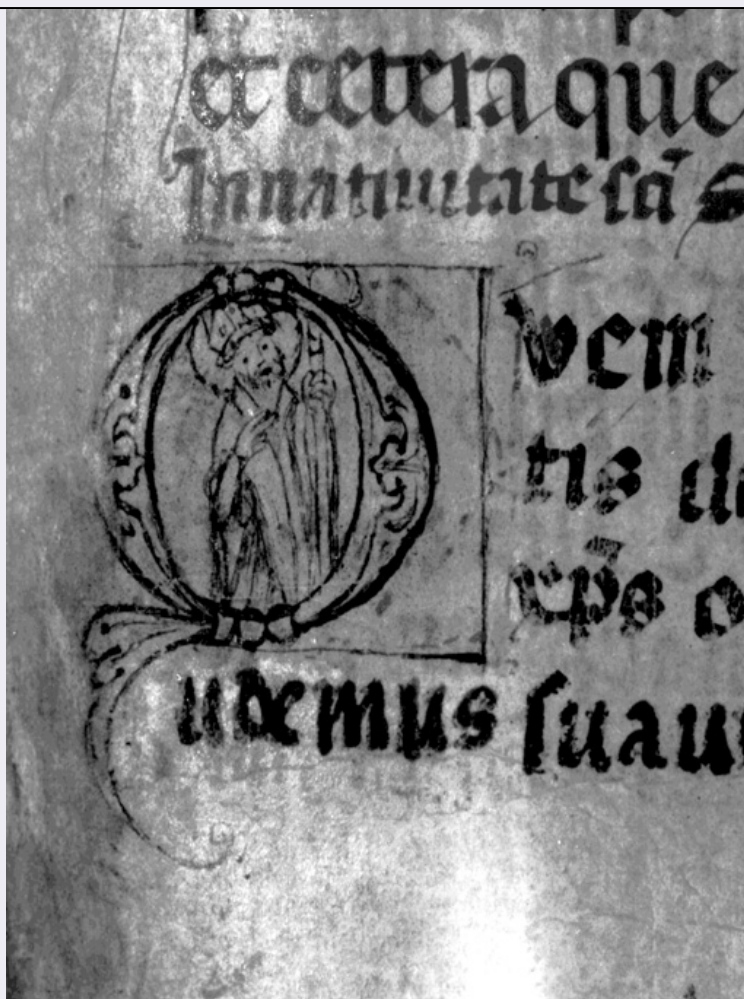 et cetera que
In natiuitate sc̄i S
Quem
tis di
xp̄s o
udemus suaui